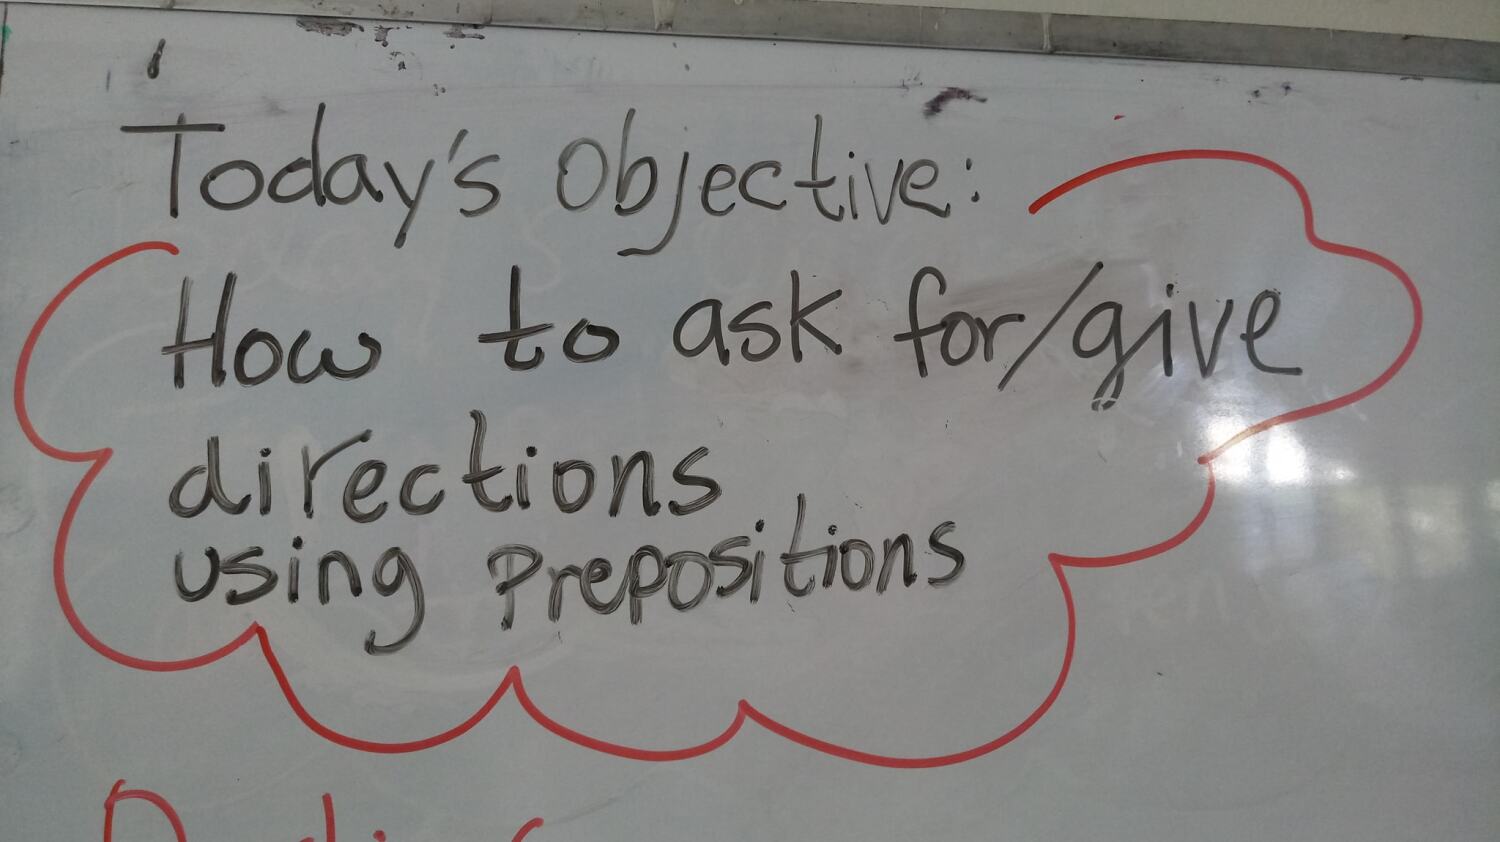 Today's Objective:
How to ask for/give
directions
using Prepositions